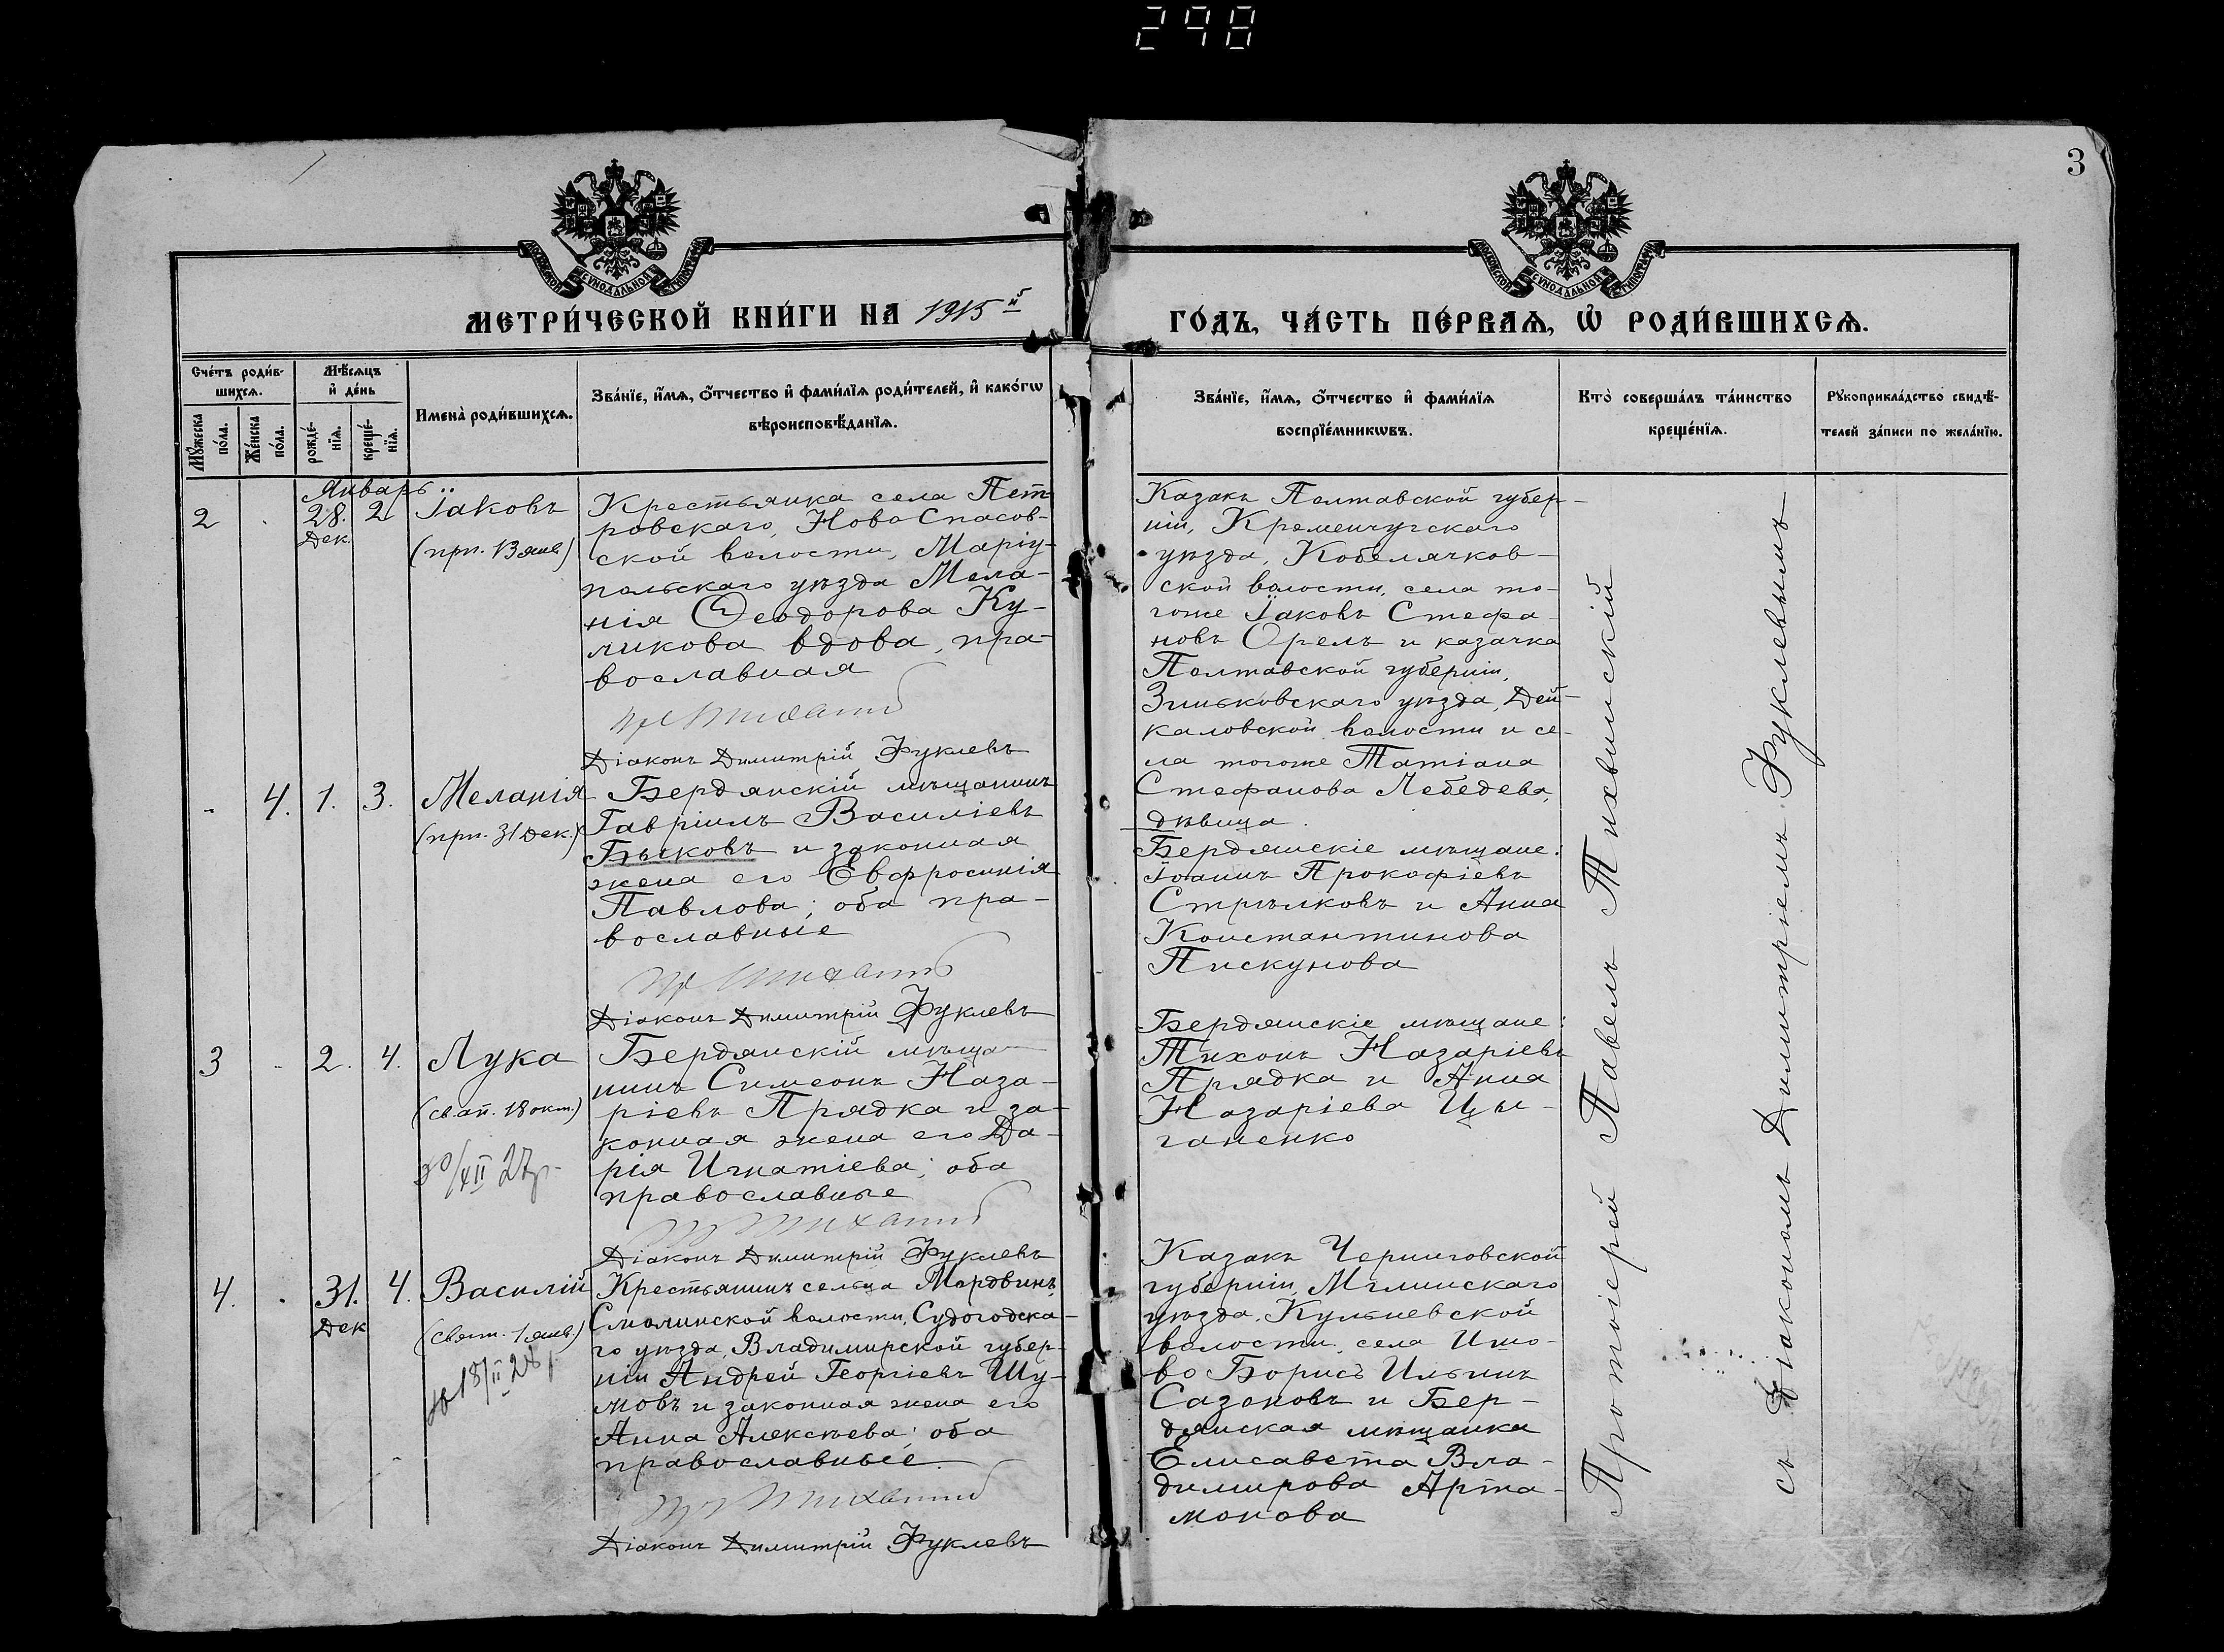 298
3
МОСКОВСКОЙ СѴНОДАЛЬНОЙ ТИПОГРАФІИ
МОСКОВСКОЙ СѴНОДАЛЬНОЙ ТИПОГРАФІИ
МЕТРИ́ЧЕСКОЙ КНИ́ГИ НА 1915й
ГО́ДЪ, ЧА́СТЬ ПЕ́РВАЯ, Ѡ҆ РОДИ́ВШИХСЯ.
Сче́тъ роди́в-
шихся.
Мꙋ́жеска
по́ла.
Же́нска
по́ла.
Мѣ́сяцъ
и҆ де́нь
рожде́-
нїя.
креще́-
нїя.
Имена̀ роди́вшихся.
Зва́нїе, и҆́мя, ѻ҆́тчество и҆ фами́лїя роди́телей, и҆ како́гѡ
вѣроисповѣ́данїя.
Зва́нїе, и҆́мя, ѻ҆́тчество и҆ фами́лїя
воспрїе́мникѡвъ.
Кто̀ соверша́лъ та́инство
креще́нїя.
Рꙋкоприкла́дство свидѣ́-
телей за́писи по жела́нїю.
Январь
2
28. 2
Дек.
Іаковъ
(прп. 13 янв.)
Крестьянка села Пет-
ровскаго, Ново Спасов-
ской волости, Маріу-
польскаго уѣзда Мела-
нія Ѳеодорова Ку-
ликова вдова, пра-
вославная
Діаконъ Димитрій Фуклевъ
Казакъ Полтавской губер-
ніи, Кременчугскаго
уѣзда, Кобелячков-
ской волости, села то-
гоже Іаковъ Стефа-
новъ Орелъ и казачка
Полтавской губерніи,
Зиньковскаго уѣзда, Дей-
каловской волости и се-
ла тогоже Татіана
Стефанова Лебедева,
дѣвица.
- 4. 1. 3.
Меланія
(прп. 31 Дек.)
Бердянскій мѣщанинъ
Гавріилъ Василіевъ
Бысковъ и законная
жена его Евфросинія
Павлова; оба пра-
вославные
Діаконъ Димитрій Фуклевъ
Бердянскіе мѣщане:
Іоаннъ Прокофіевъ
Стрѣлковъ и Анна
Константинова
Пискунова
3 - 2. 4.
Лука
(св. ап. 18 окт.)
30/XII 27
Бердянскій мѣща-
нинъ Симеонъ Наза-
ріевъ Прядка и за-
конная жена его Да-
рія Игнатіева; оба
православные
Діаконъ Димитрій Фуклевъ
Бердянскіе мѣщане:
Тихонъ Назаріевъ
Прядка и Анна
Назаріева Цы-
ганенко
4. - 31. 4.
Дек
Василій
(свят. 1 янв.)
18/II 28
Крестьянинъ сельца Мордвинъ,
Смолинской волости, Судогодска-
го уѣзда, Владимирской губер-
ніи Андрей Георгіевъ Шу-
мовъ и законная жена его
Анна Алексѣева; оба
православные.
Діаконъ Димитрій Фуклевъ
Казакъ Черниговской
губерніи, Мглинскаго
уѣзда, Кульневской
волости, села Ишо-
во Борисъ Ильинъ
Сазоновъ и Бер-
дянская мѣщанка
Елисавета Вла-
димирова Арта-
монова
Протоіерей Павелъ Тихвинскій
съ Діакономъ Димитріемъ Фуклевымъ